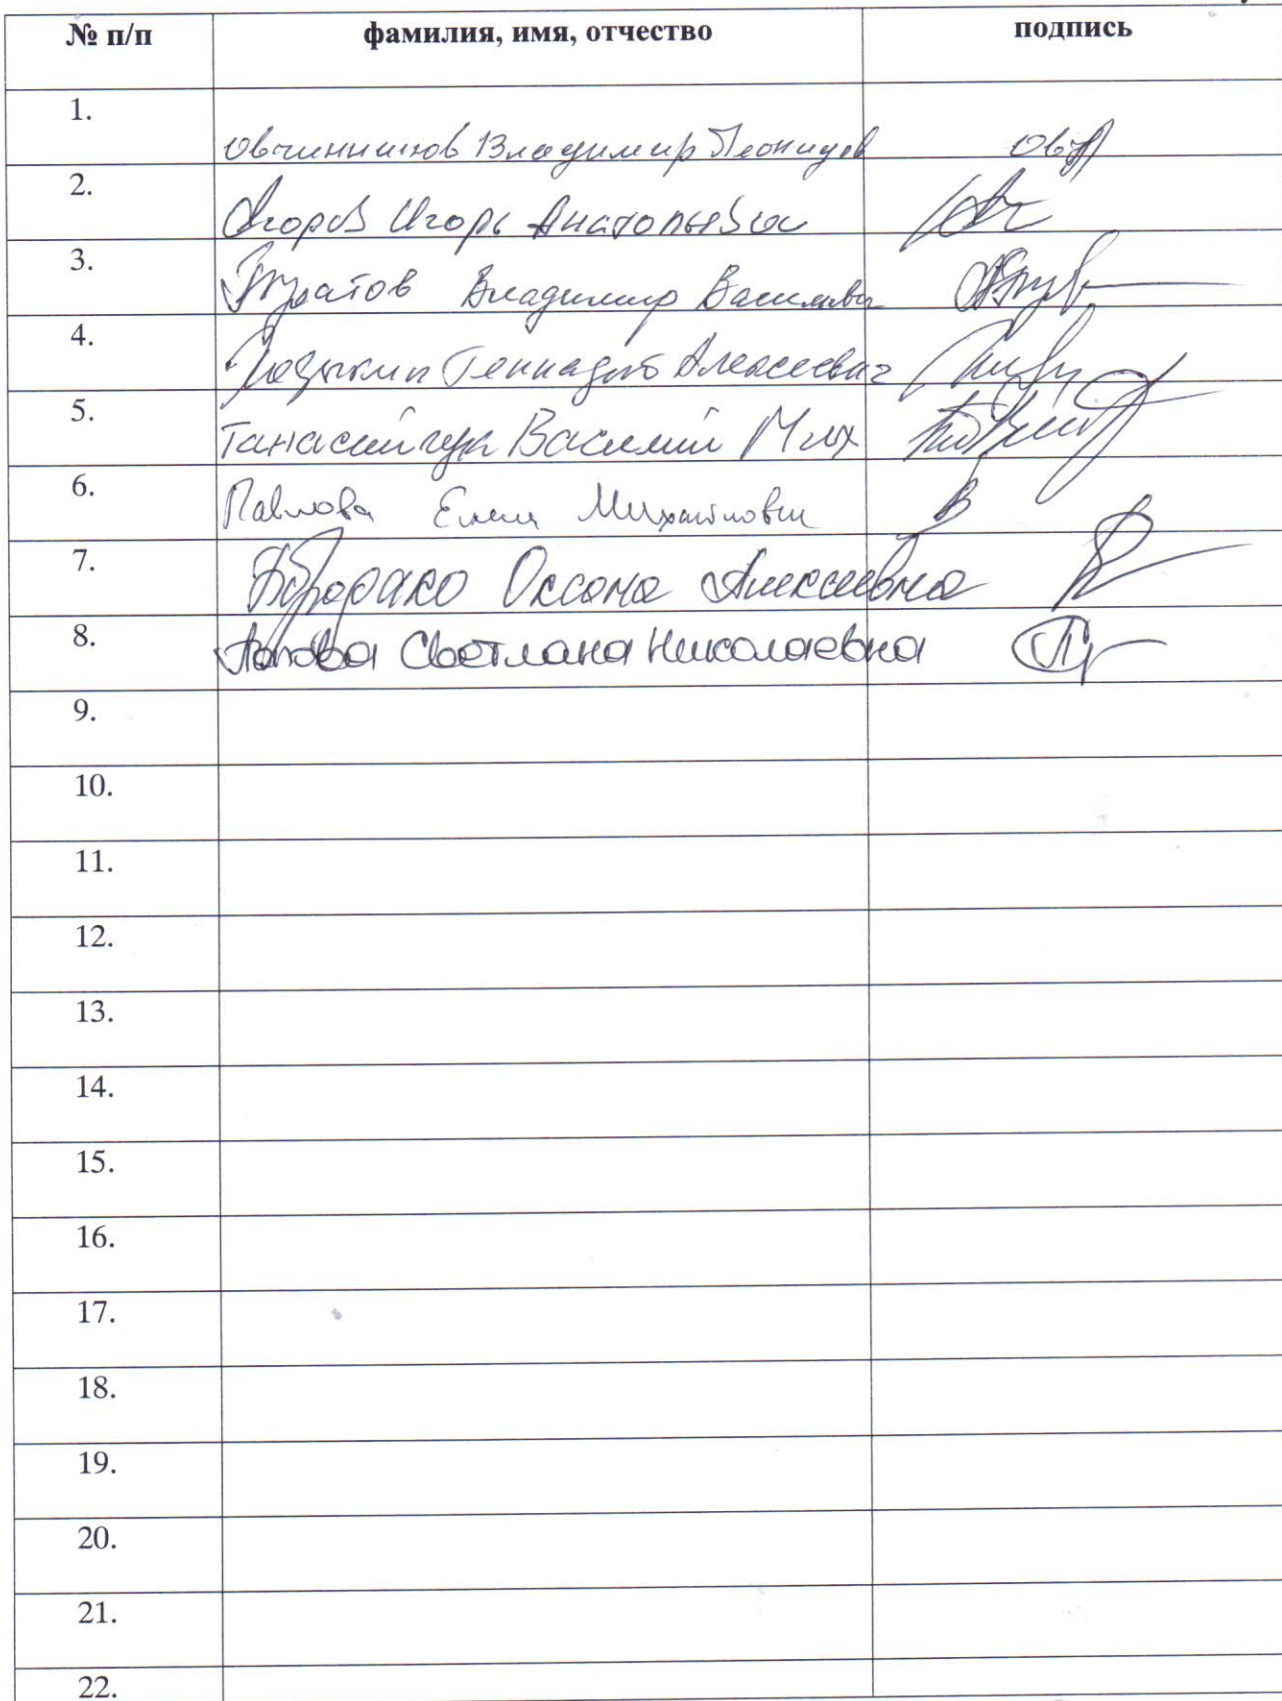 № п/п фамилия, имя, отчество подпись
1. Овчинников Владимир Леонидов
2. Игорь Анатольевич
3. Владимир Василь
4. Геннадий Алексеевич
5. Танасийчук Василий Мих
6. Павлова Елена Михайловн
7. Оксана Алексеевна
8. Светлана Николаевна
9.
10.
11.
12.
13.
14.
15.
16.
17.
18.
19.
20.
21.
22.